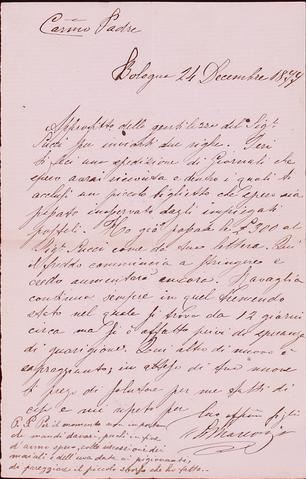 Carmo Padre
Bologna 24 Decembre 18
Approfitto della gentilezza del Sigr
Pucci per inviarti due righe. Ieri
ti feci una spedizione di Giornali che
spero avrai ricevuta e dentro i quali ti
acclusi un piccolo biglietto che spero sia
passato inosservato dagli impiegati
postali. Ho già pagato le £ 300 al
Sigr Pucci come da tua lettera. Qui
il freddo comincia a stringere e
credo aumenterà ancora. Travaglia
continua sempre in quel tremendo
stato nel quale si trova da 12 giorni
circa ma si è affatto privi di speranza
di guarigione. Qui altro di nuovo è
sopraggiunto, in attesa di tue nuove
ti prego di salutare per me tutti di
e mi ripeto per tuo affmo figlio
P. S. Per il momento non importa
che mandi danari, perchè in fine
d'anno spero, colle riscossioni dei
e dell'una data ai pigionanti,
di pareggiare il piccolo sborso che ho fatto.